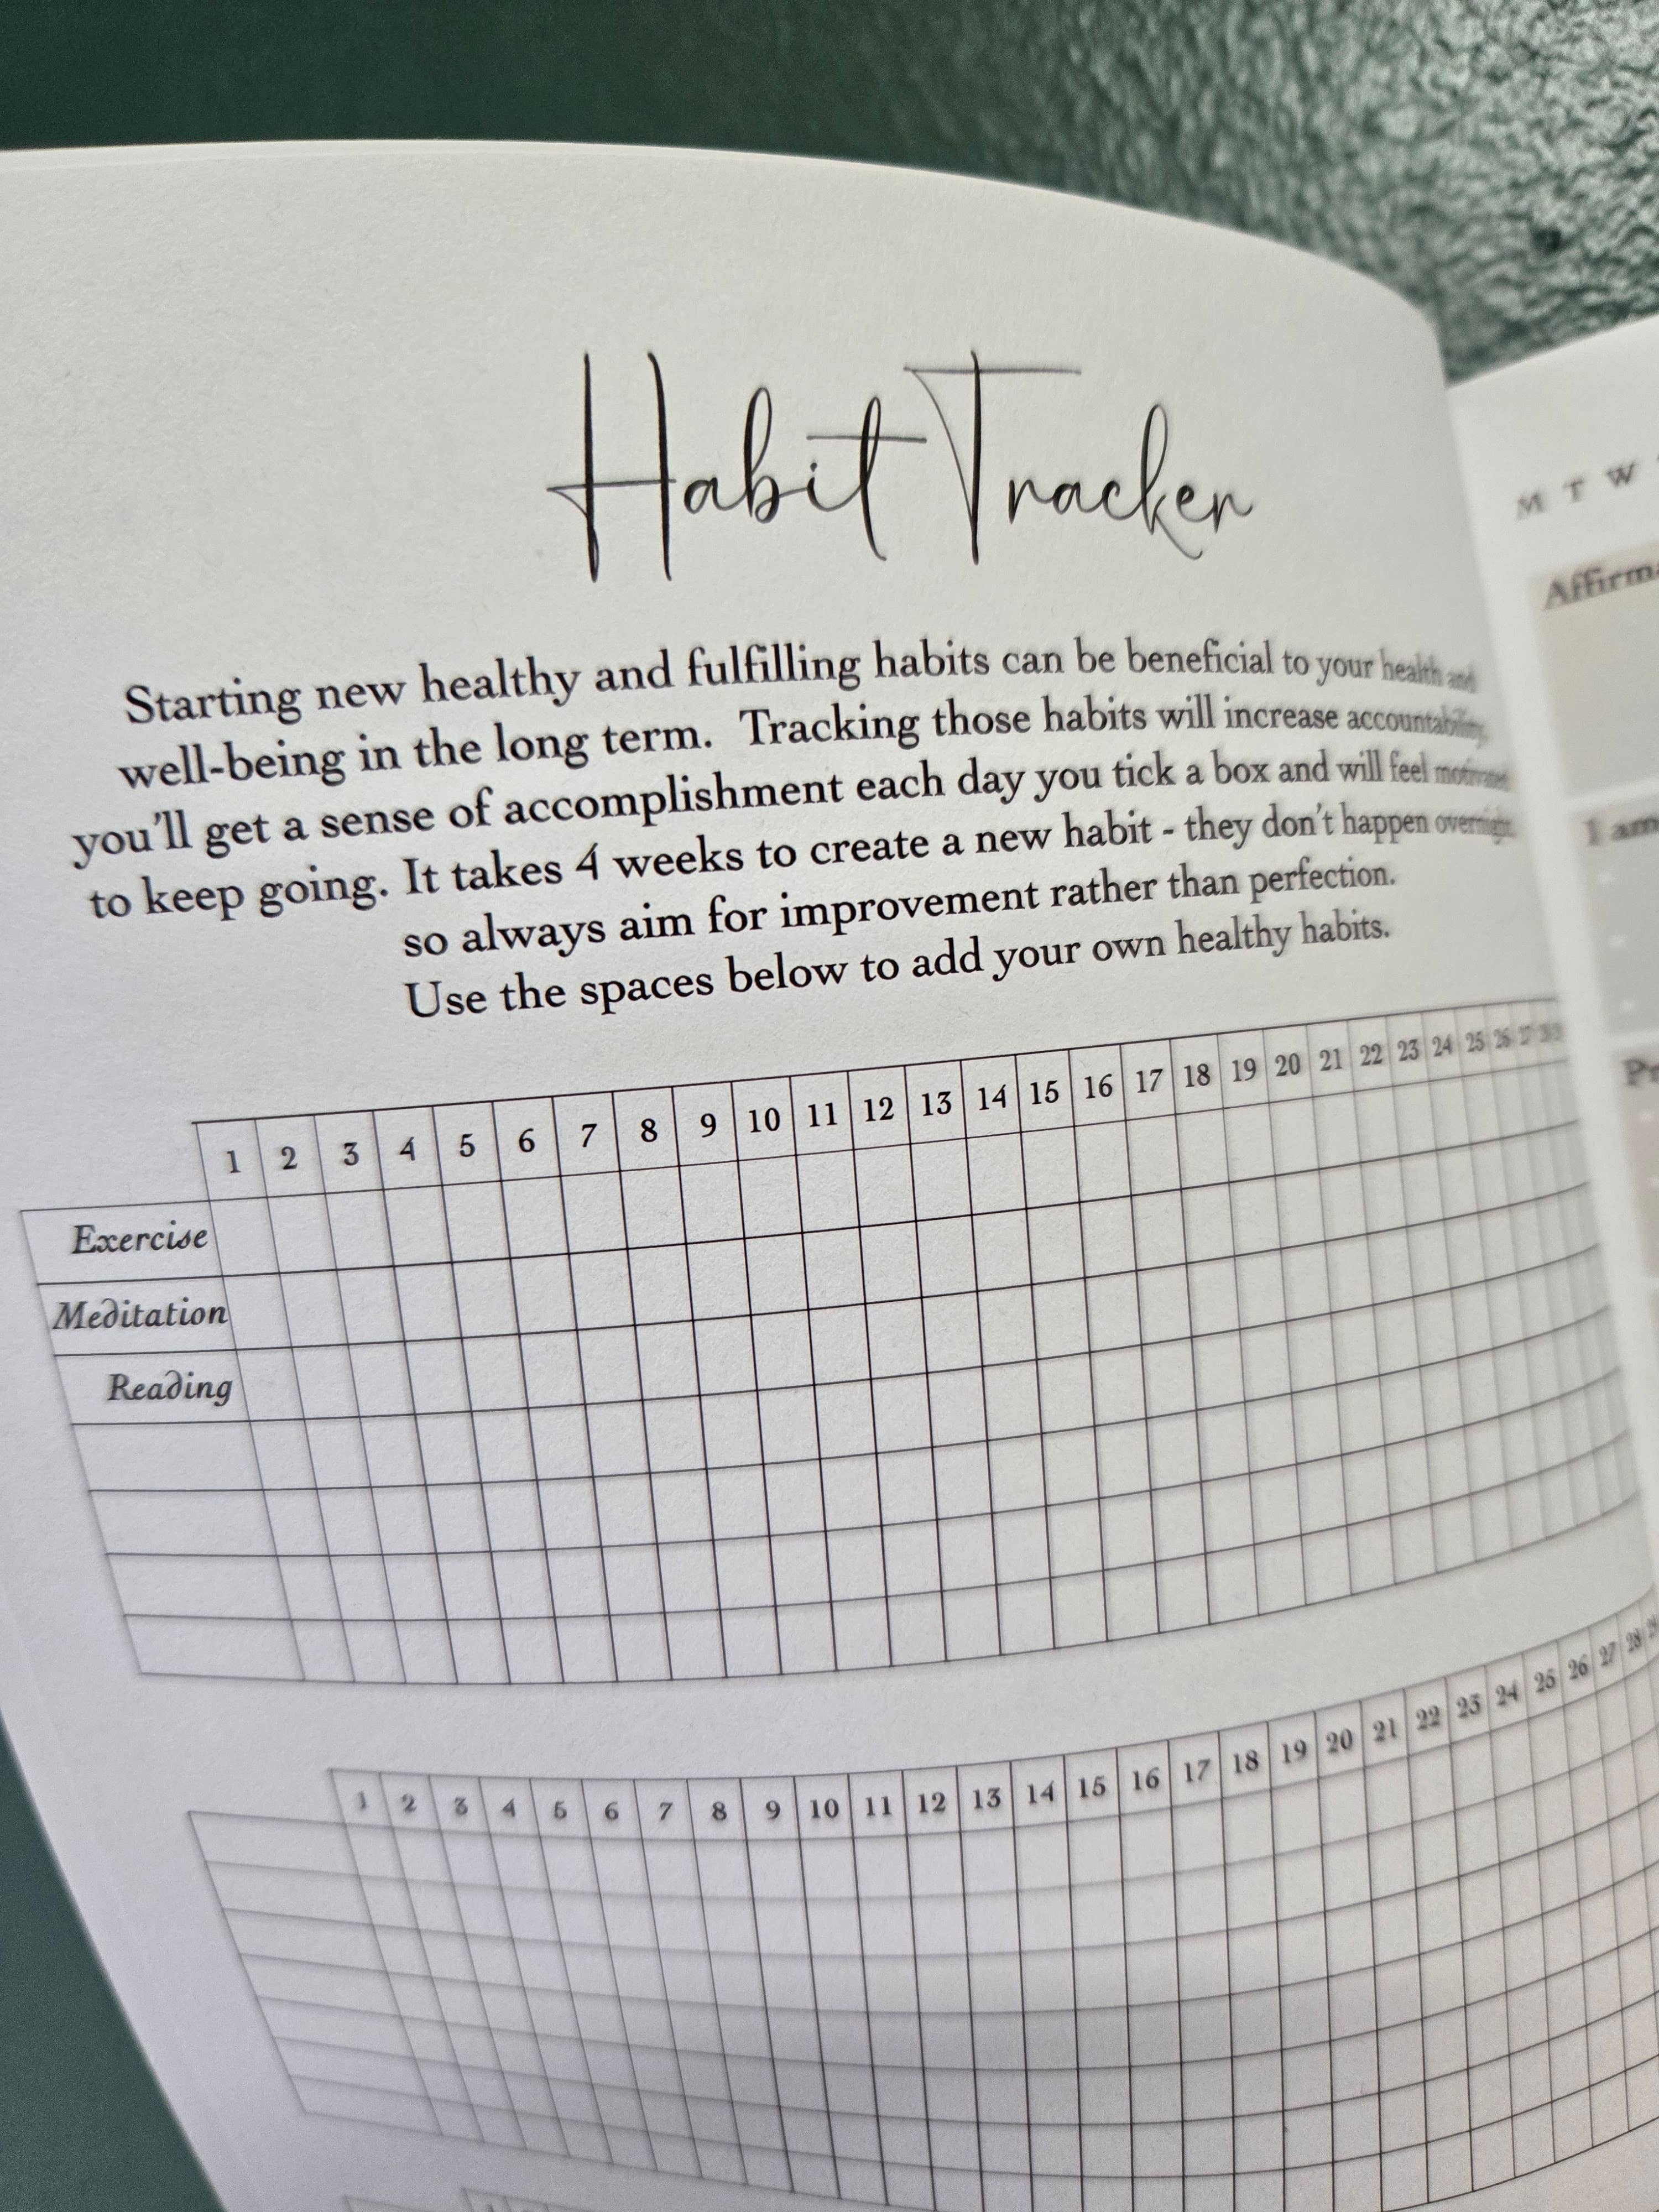 Habit Tracker
Starting new healthy and fulfilling habits can be beneficial to your health and
well-being in the long term. Tracking those habits will increase accountability,
you'll get a sense of accomplishment each day you tick a box and will feel motivated
to keep going. It takes 4 weeks to create a new habit - they don't happen overnight
so always aim for improvement rather than perfection.
Use the spaces below to add your own healthy habits.
1 2 3 4 5 6 7 8 9 10 11 12 13 14 15 16 17 18 19 20 21 22 23 24 25 26 27 28
Exercise
Meditation
Reading
1 2 3 4 5 6 7 8 9 10 11 12 13 14 15 16 17 18 19 20 21 22 23 24 25 26 27 28
M T W
I am